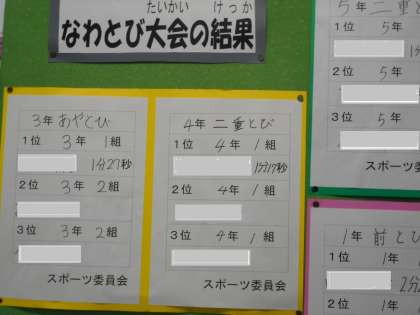 たいかい けっか
なわとび大会の結果
3年 あやとび
1位 3年 1組
1分27秒
2位 3年 2組
3位 3年 2組
スポーツ委員会
4年 二重とび
1位 4年 1組
1分17秒
2位 4年 1組
3位 4年 1組
スポーツ委員会
5年 二重
1位 5年
2位 5年
3位 5年
スポーツ委員
1年 前とび
1位 1年
2分
2位 1年